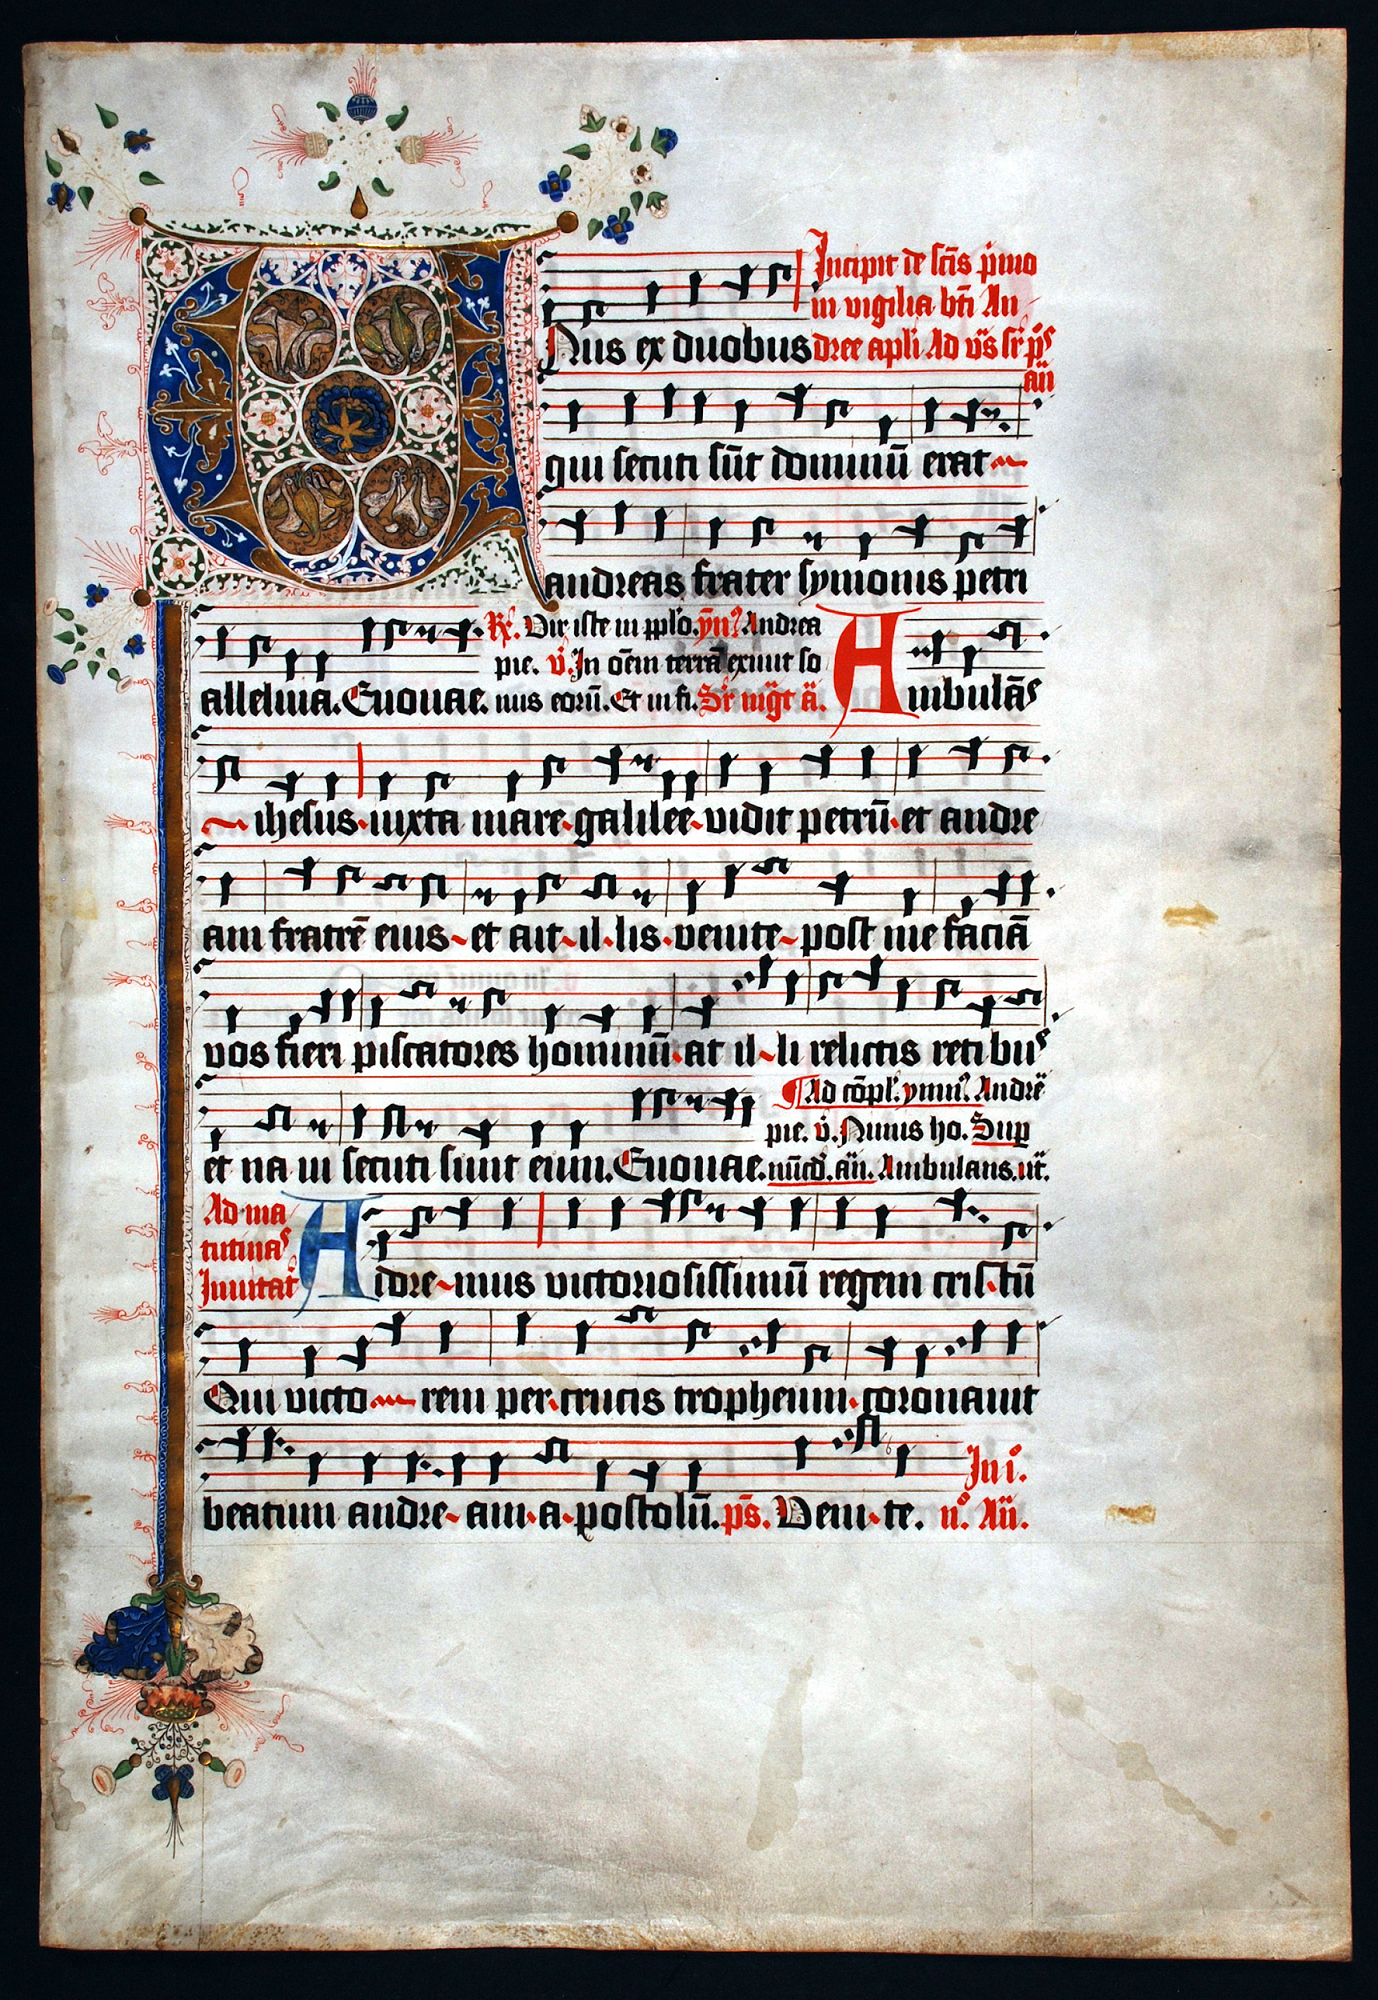 Incipit de scīs primo
in vigilia btī An
Nus ex duobus dree apli Ad vs̄ sr̄ ps̄
an̄
qui secuti sūt dominū erat
andreas frater symonis petri
R. Vir iste in pplō. ymꝰ. Andrea
pie. v̄. In oēm terrā exiuit so
alleluia. Euouae. nus eorū. Et in fi. Sr̄ mgt a. Ambulās
ihesus iuxta mare galilee vidit petrū et andre
am fratrē eius et ait il lis venite post me faciā
vos fieri piscatores hominū at il li relictis retibus
Ad cōpl. ymnꝰ. Andree
pie. v̄. Nimis ho. Sup
et na ui secuti sunt eum. Euouae. nūcd. an̄. Ambulans. ut̄.
Ad ma
tutinas
Inuitat
Adore mus victoriosissimū regem cristū
Qui victo rem per crucis tropheum coronauit
In i.
beatum andre am a postolū. ps̄. Veni te. nº. An̄.